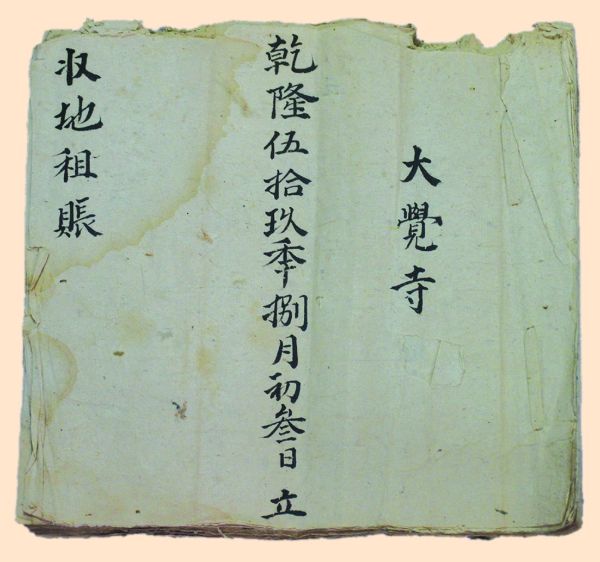 大覺寺
乾隆伍拾玖秊捌月初叁日 立
收地租賬